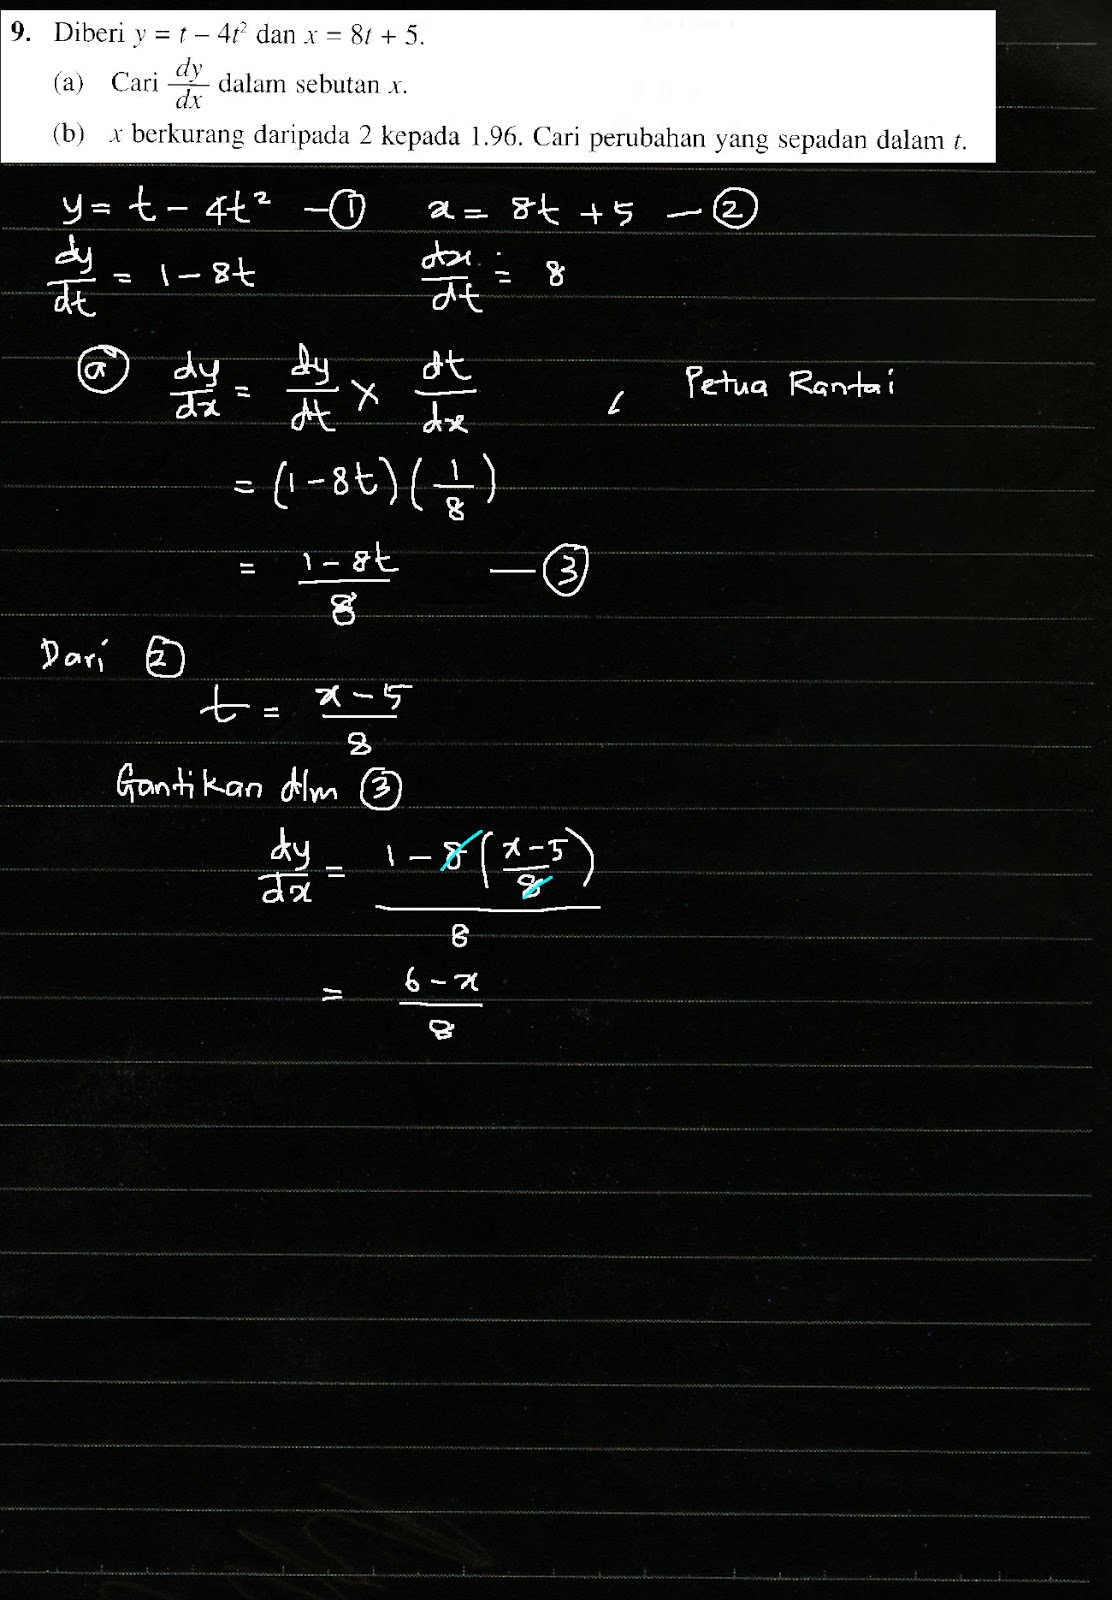 9. Diberi y = t – 4t² dan x = 8t + 5.
(a) Cari dy/dx dalam sebutan x.
(b) x berkurang daripada 2 kepada 1.96. Cari perubahan yang sepadan dalam t.
y = t – 4t² – ① x = 8t + 5 – ②
dy/dt = 1 – 8t dx/dt = 8
ⓐ dy/dx = dy/dt × dt/dx , Petua Rantai
= (1 – 8t)(1/8)
= (1 – 8t)/8 – ③
Dari ②
t = (x – 5)/8
Gantikan dlm ③
dy/dx = (1 – 8((x – 5)/8))/8
= (6 – x)/8